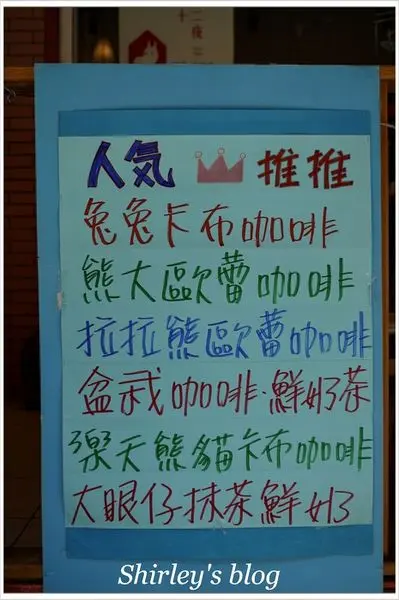 二夜
十
人気 推推
兔兔卡布咖啡
熊大歐蕾咖啡
拉拉熊歐蕾咖啡
盆栽咖啡.鮮奶茶
樂天熊貓卡布咖啡
大眼仔抹茶鮮奶
Shirley's blog